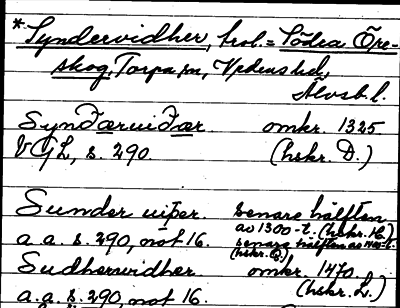 *Syndervidher, trol. = Södra Öre-
skog, Torpa sn, Vedens hd,
Älvsb. l.
Synðæruiðær omkr. 1325
VGL, s. 290 (hskr. D.)
Sunder uiþer. senare hälften
av 1300-t. (hskr. H.)
a. a. s. 290, not 16. senare hälften av 1400-t.
(hskr. G.)
Sudhervidher omkr. 1470
a. a. s. 290, not 16. (hskr. L.)